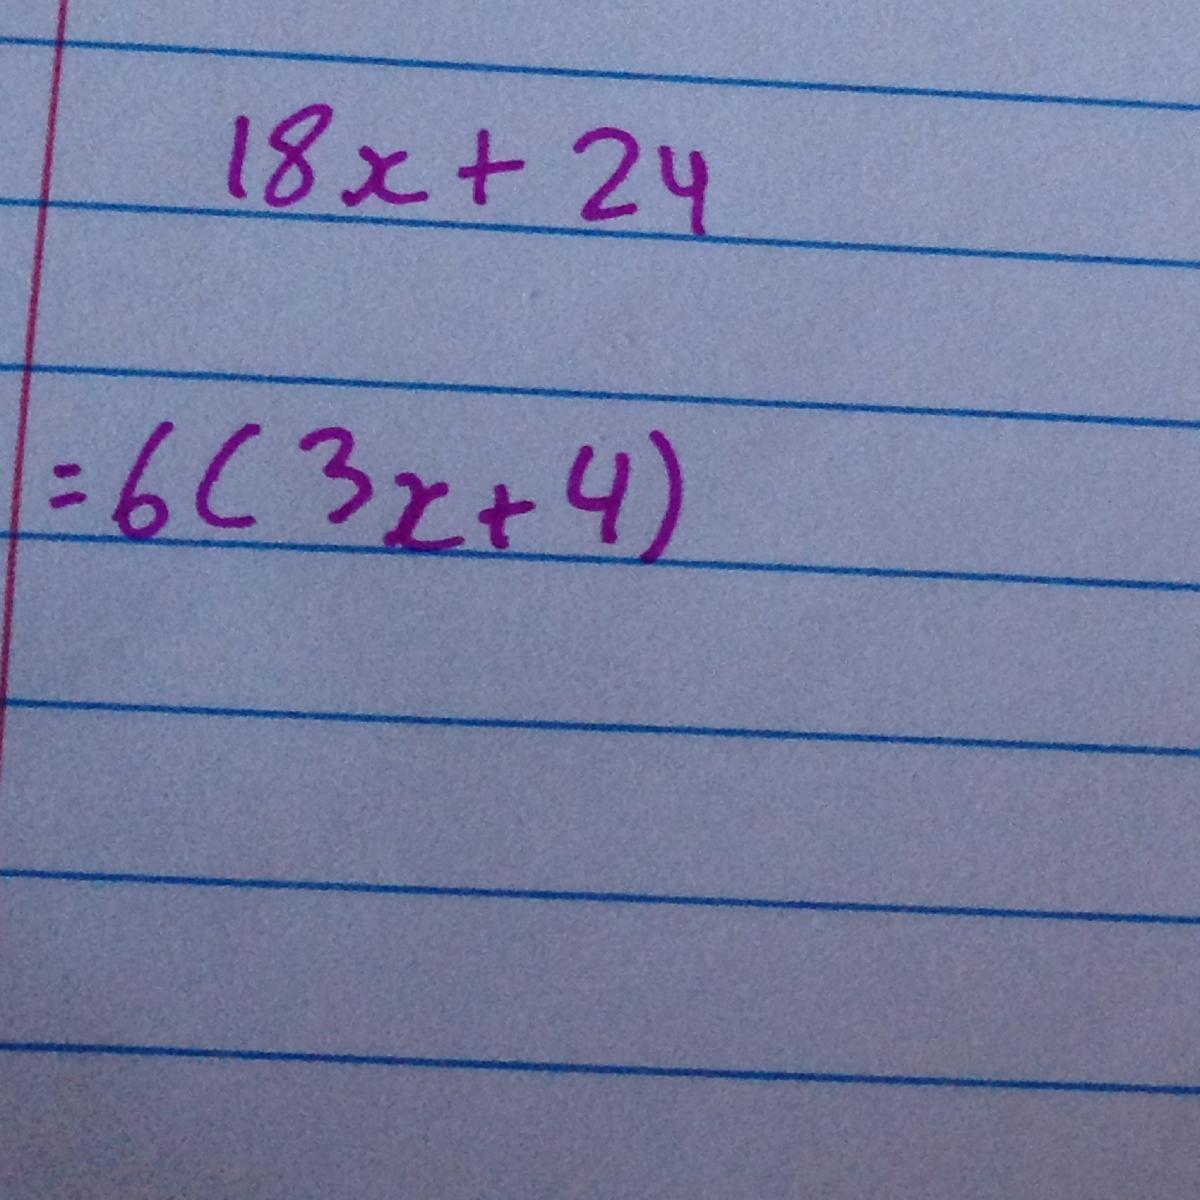 18x + 24
= 6(3x + 4)